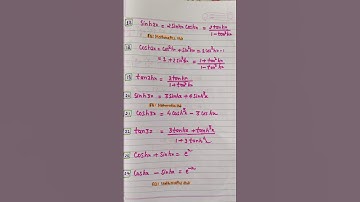 sinh2x = 2sinhx coshx = 2tanhx / 1 - tanh²x
FB: Mathematics Hub
18 cosh2x = cosh²x + sinh²x = 2cosh²x - 1
= 1 + 2sinh²x = 1 + tanh²x / 1 - tanh²x
19 tanh2x = 2tanhx / 1 + tanh²x
20 sinh3x = 3sinhx + 4sinh³x
FB: Mathematics Hub
21 cosh3x = 4cosh³x - 3coshx
22 tan3x = 3tanhx + tanh³x / 1 + 3tanh²x
23 coshx + sinhx = eˣ
24 coshx - sinhx = e⁻ˣ
FB: Mathematics Hub